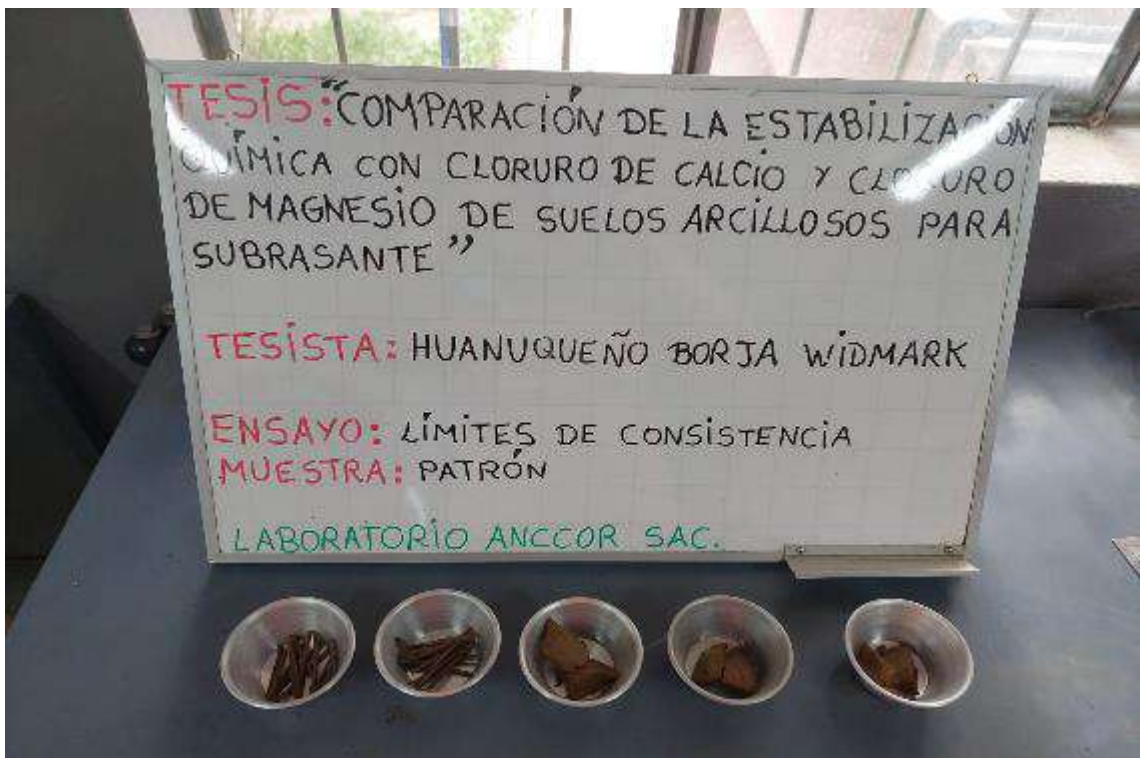 TESIS: "COMPARACIÓN DE LA ESTABILIZACIÓN
QUÍMICA CON CLORURO DE CALCIO Y CLORURO
DE MAGNESIO DE SUELOS ARCILLOSOS PARA
SUBRASANTE"
TESISTA: HUANUQUEÑO BORJA WIDMARK
ENSAYO: LÍMITES DE CONSISTENCIA
MUESTRA: PATRÓN
LABORATORIO ANCCOR SAC.